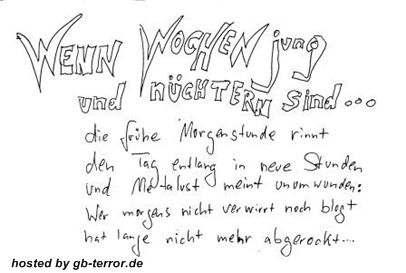 WENN WOCHEN jung
und NÜCHTERN sind...
die frühe Morgenstunde rinnt
den Tag entlang in neue Stunden
und Metalust meint unumwunden:
Wer morgens nicht verwirrt noch blogt
hat lange nicht mehr abgerockt....
hosted by gb-terror.de